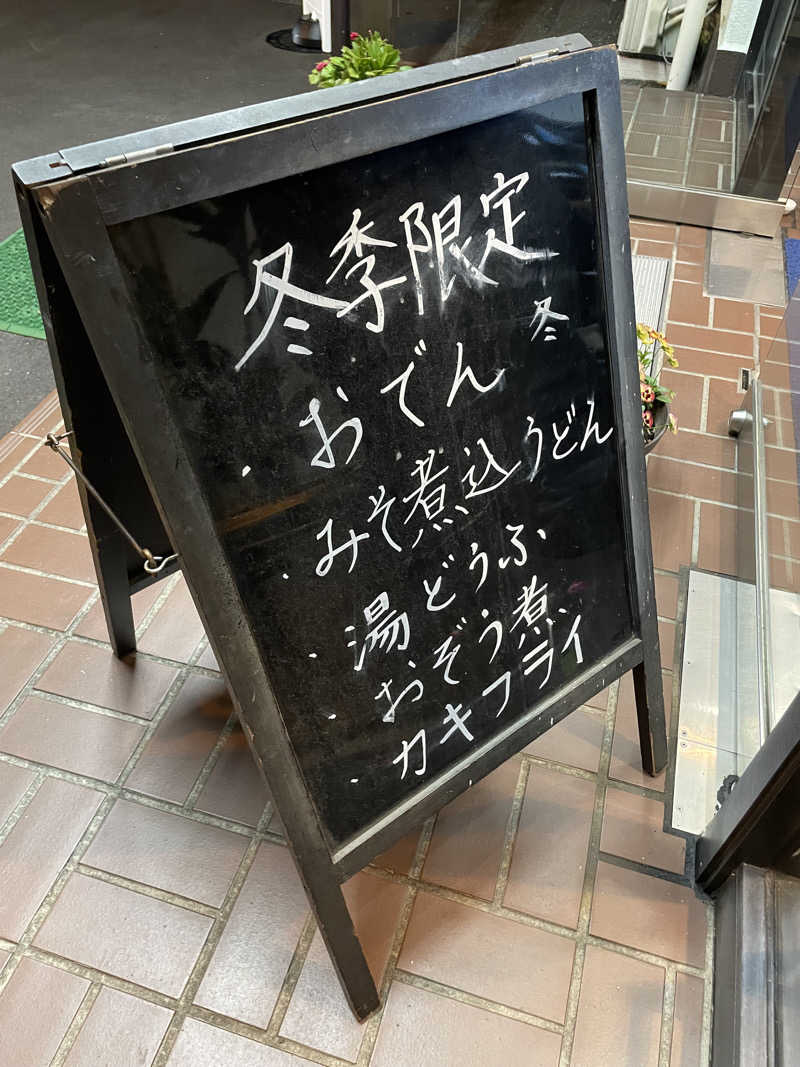 冬季限定
冬
・おでん
・みそ煮込うどん
・湯どうふ
・おぞう煮
・カキフライ